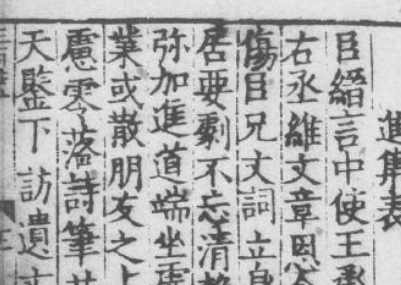 進集表
臣縉言中使王承
右丞維文章恩
傷臣兄文詞立身
居要劇不忘清
弥加進道端坐虛
業或散朋友之上
慮零落詩筆共
天鑒下訪遺文